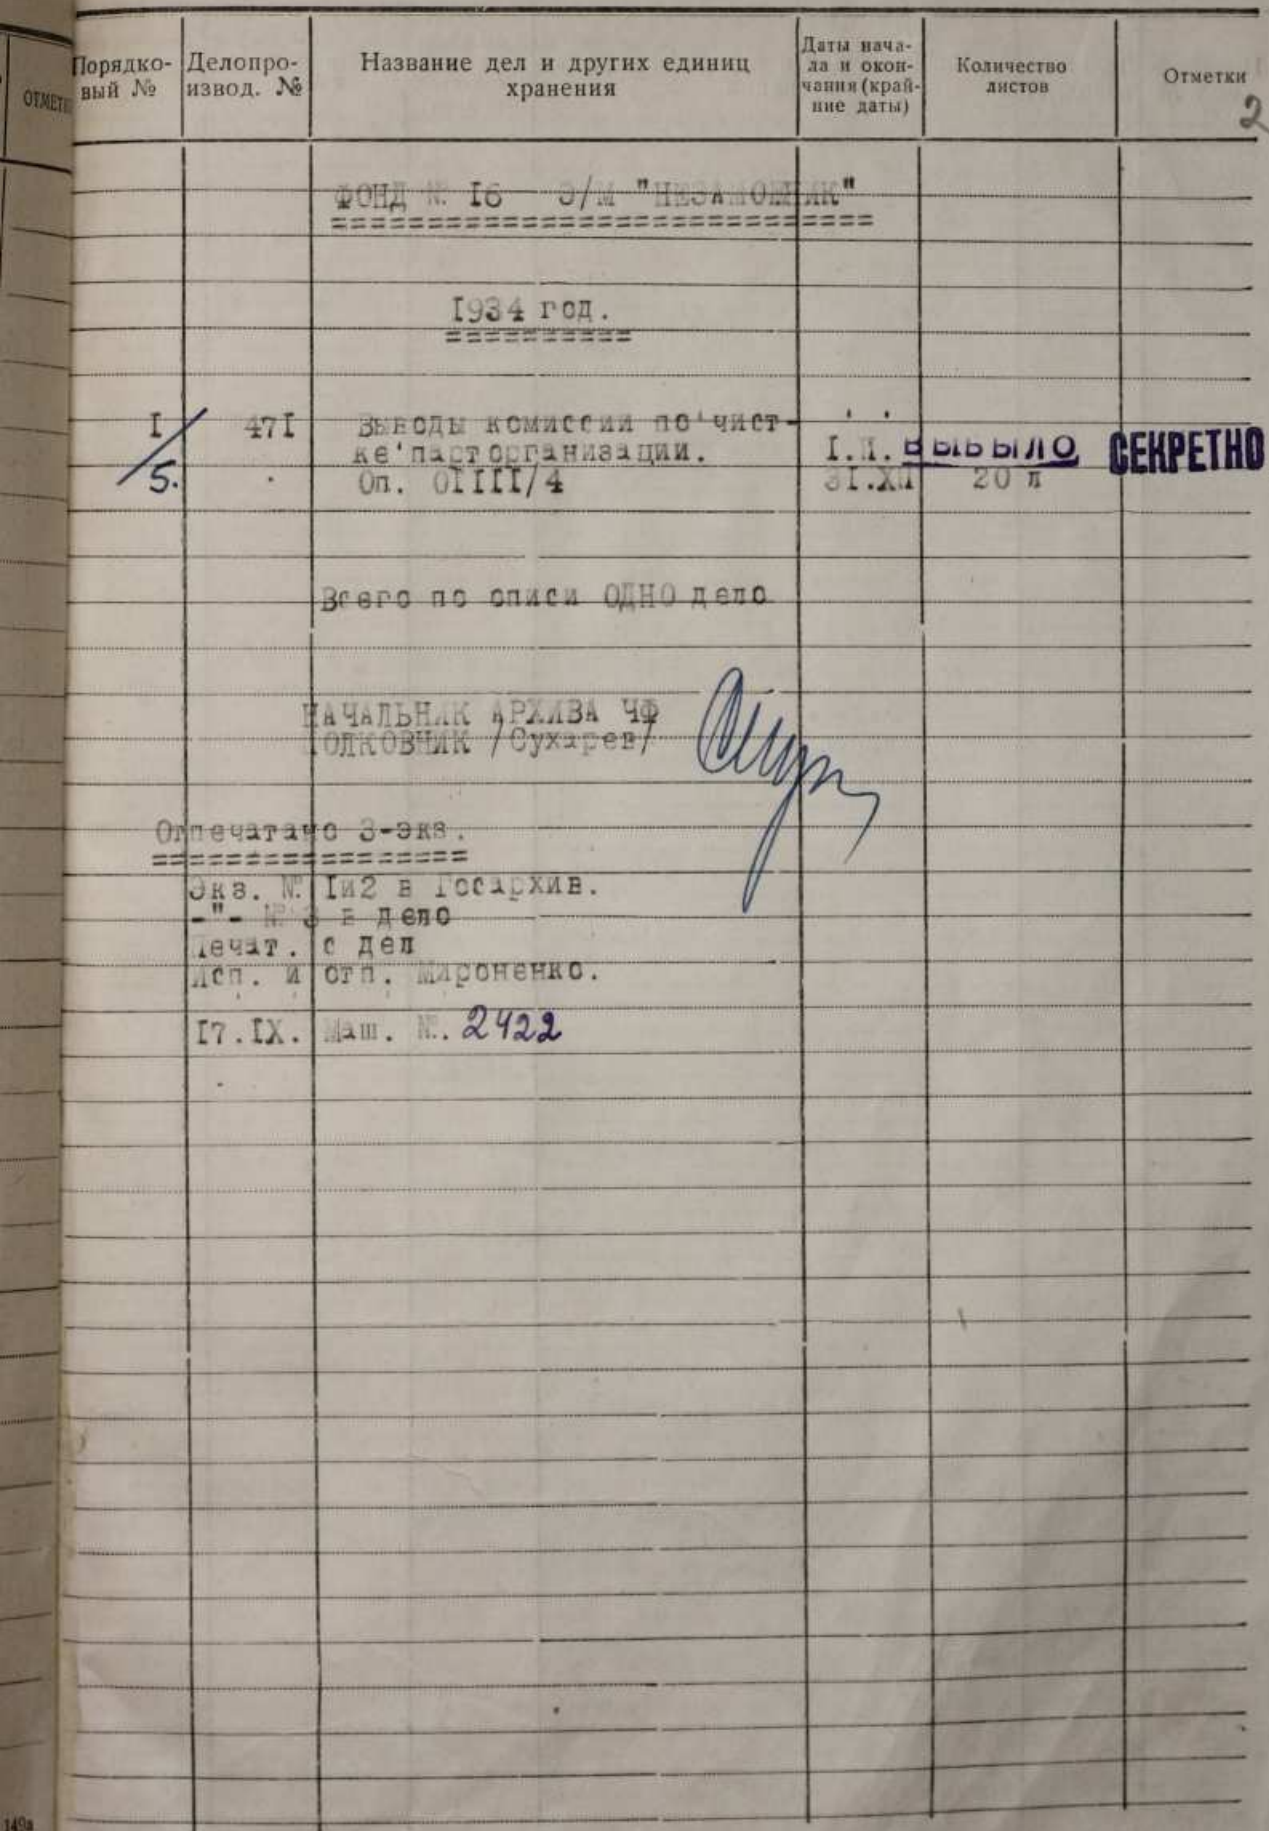 ОТМЕТКИ
Порядко-
вый №
Делопро-
извод. №
Название дел и других единиц
хранения
Даты нача-
ла и окон-
чания (край-
ние даты)
Количество
листов
Отметки
2
ФОНД № I6 Э/М "НЕЗАМОЖНИК"
1934 год.
I 47I Выводы комиссии по чист-
ке парторганизации. I.I. ВЫБЫЛО СЕКРЕТНО
5. Оп. OIIII/4 3I.XII 20 л
Всего по описи ОДНО дело
НАЧАЛЬНИК АРХИВА ЧФ
ПОЛКОВНИК /Сухарев/
Отпечатано 3-экз.
Экз. № Iи2 в Госархив.
-"- № 3 в дело
Печат. с дел
Исп. и отп. Мироненко.
I7.IX. Маш. №. 2422
149а